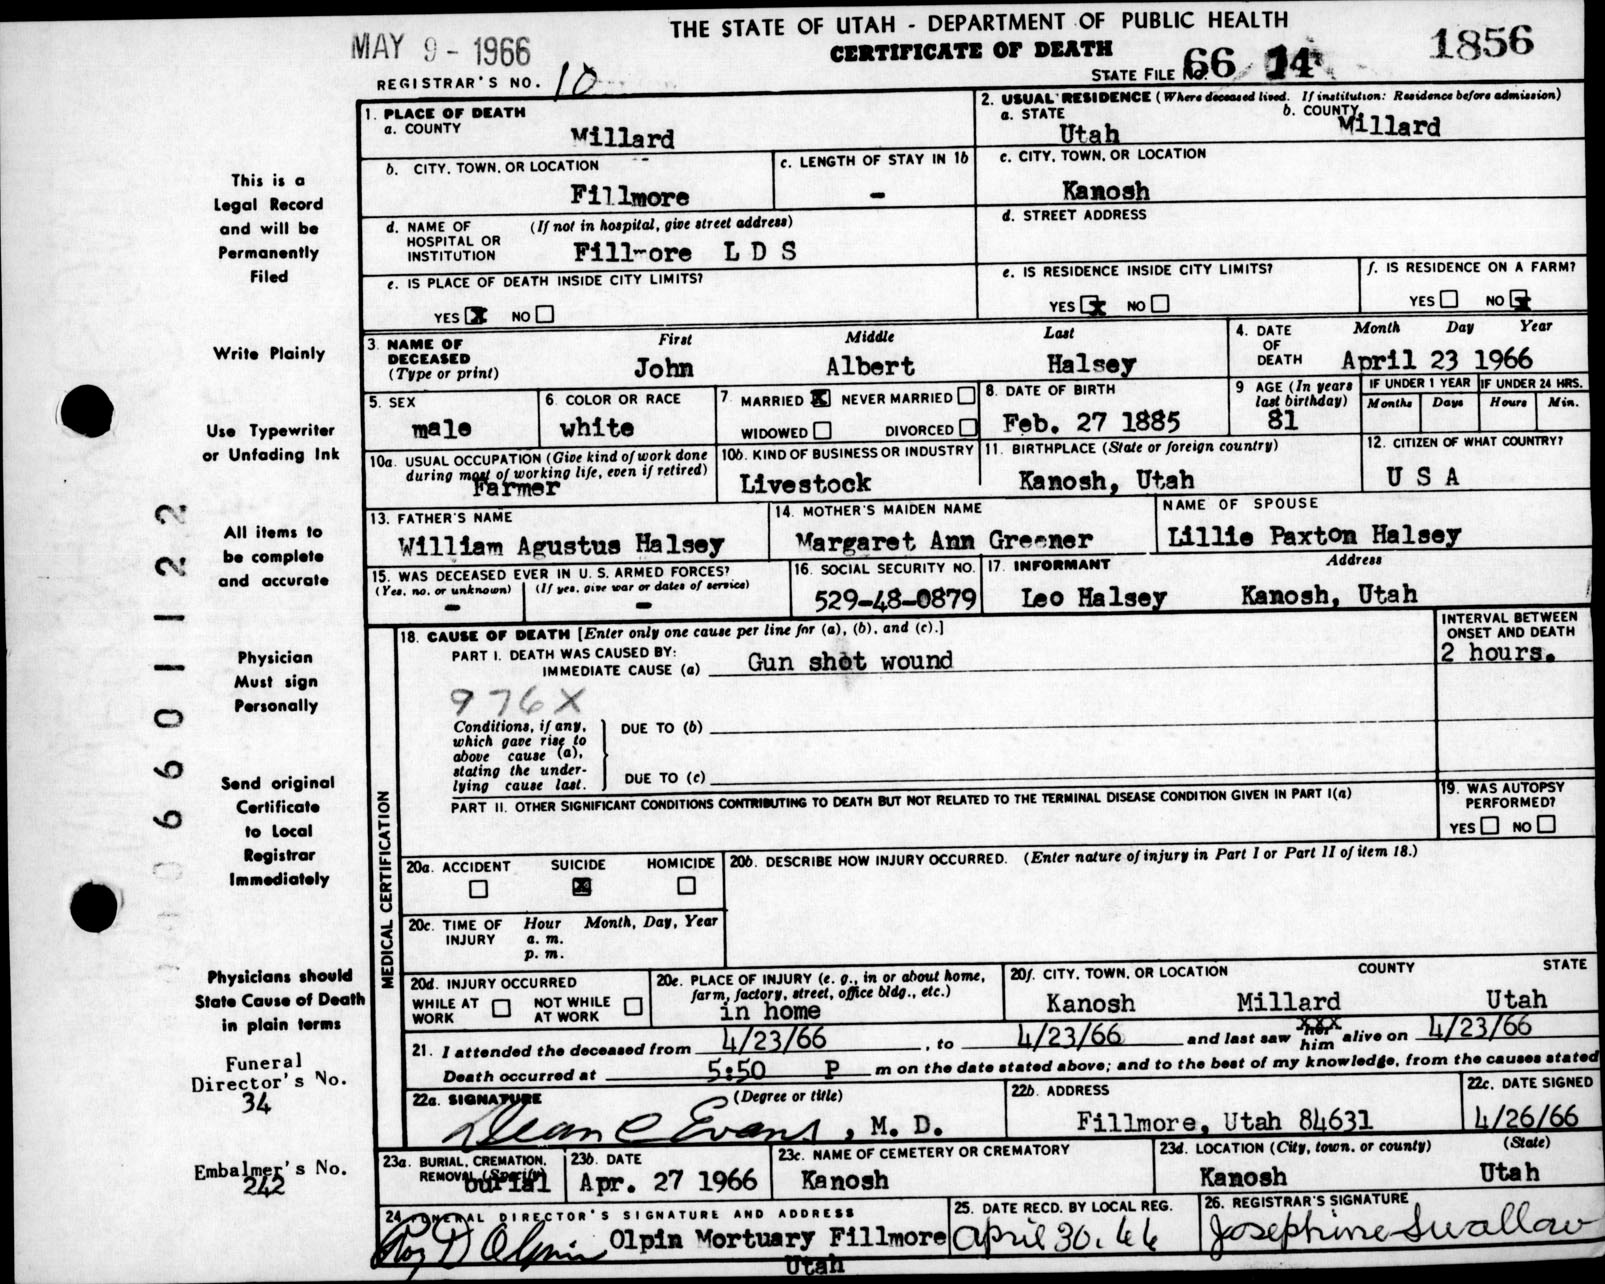 THE STATE OF UTAH - DEPARTMENT OF PUBLIC HEALTH
MAY 9 - 1966
CERTIFICATE OF DEATH
1856
REGISTRAR'S NO. 10
STATE FILE NO. 66 14
1. PLACE OF DEATH
a. COUNTY
Millard
2. USUAL RESIDENCE (Where deceased lived. If institution: Residence before admission)
a. STATE
Utah
b. COUNTY
Millard
b. CITY, TOWN, OR LOCATION
Fillmore
c. LENGTH OF STAY IN 1b
-
c. CITY, TOWN, OR LOCATION
Kanosh
d. NAME OF HOSPITAL OR INSTITUTION
(If not in hospital, give street address)
Fillmore L D S
d. STREET ADDRESS
e. IS PLACE OF DEATH INSIDE CITY LIMITS?
YES X NO
e. IS RESIDENCE INSIDE CITY LIMITS?
YES X NO
f. IS RESIDENCE ON A FARM?
YES NO X
3. NAME OF DECEASED (Type or print)
First Middle Last
John Albert Halsey
4. DATE OF DEATH
Month Day Year
April 23 1966
5. SEX
male
6. COLOR OR RACE
white
7. MARRIED X NEVER MARRIED
WIDOWED DIVORCED
8. DATE OF BIRTH
Feb. 27 1885
9 AGE (In years last birthday)
81
IF UNDER 1 YEAR
Months Days
IF UNDER 24 HRS.
Hours Min.
10a. USUAL OCCUPATION (Give kind of work done during most of working life, even if retired)
Farmer
10b. KIND OF BUSINESS OR INDUSTRY
Livestock
11. BIRTHPLACE (State or foreign country)
Kanosh, Utah
12. CITIZEN OF WHAT COUNTRY?
U S A
13. FATHER'S NAME
William Agustus Halsey
14. MOTHER'S MAIDEN NAME
Margaret Ann Greener
NAME OF SPOUSE
Lillie Paxton Halsey
15. WAS DECEASED EVER IN U. S. ARMED FORCES?
(Yes, no, or unknown) (If yes, give war or dates of service)
- -
16. SOCIAL SECURITY NO.
529-48-0879
17. INFORMANT Address
Leo Halsey Kanosh, Utah
18. CAUSE OF DEATH [Enter only one cause per line for (a), (b), and (c).]
PART I. DEATH WAS CAUSED BY:
IMMEDIATE CAUSE (a) Gun shot wound
INTERVAL BETWEEN ONSET AND DEATH
2 hours.
976X
Conditions, if any, which gave rise to above cause (a), stating the underlying cause last.
DUE TO (b)
DUE TO (c)
PART II. OTHER SIGNIFICANT CONDITIONS CONTRIBUTING TO DEATH BUT NOT RELATED TO THE TERMINAL DISEASE CONDITION GIVEN IN PART I(a)
19. WAS AUTOPSY PERFORMED?
YES NO
MEDICAL CERTIFICATION
20a. ACCIDENT SUICIDE HOMICIDE
X
20b. DESCRIBE HOW INJURY OCCURRED. (Enter nature of injury in Part I or Part II of item 18.)
20c. TIME OF INJURY
Hour Month, Day, Year
a. m.
p. m.
20d. INJURY OCCURRED
WHILE AT WORK NOT WHILE AT WORK
20e. PLACE OF INJURY (e. g., in or about home, farm, factory, street, office bldg., etc.)
in home
20f. CITY, TOWN, OR LOCATION COUNTY STATE
Kanosh Millard Utah
21. I attended the deceased from 4/23/66, to 4/23/66 and last saw her xxx him alive on 4/23/66
Death occurred at 5:50 P m on the date stated above; and to the best of my knowledge, from the causes stated
22a. SIGNATURE (Degree or title)
Dean C Evans, M. D.
22b. ADDRESS
Fillmore, Utah 84631
22c. DATE SIGNED
4/26/66
23a. BURIAL, CREMATION, REMOVAL (Specify)
burial
23b. DATE
Apr. 27 1966
23c. NAME OF CEMETERY OR CREMATORY
Kanosh
23d. LOCATION (City, town, or county) (State)
Kanosh Utah
24. FUNERAL DIRECTOR'S SIGNATURE AND ADDRESS
Roy D Olpin Olpin Mortuary Fillmore
Utah
25. DATE RECD. BY LOCAL REG.
April 30, 66
26. REGISTRAR'S SIGNATURE
Josephine Swallow
This is a
Legal Record
and will be
Permanently
Filed
Write Plainly
Use Typewriter
or Unfading Ink
All items to
be complete
and accurate
Physician
Must sign
Personally
Send original
Certificate
to Local
Registrar
Immediately
Physicians should
State Cause of Death
in plain terms
Funeral
Director's No.
34
Embalmer's No.
242
6601122